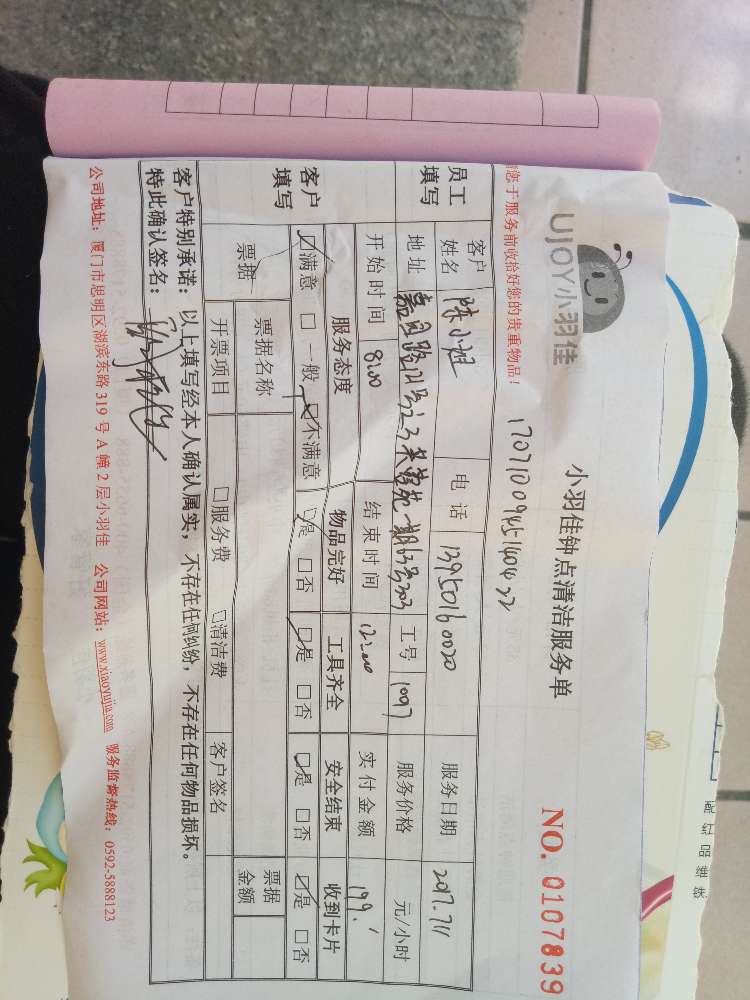 UJOY小羽佳
小羽佳钟点清洁服务单
NO. 0107839
您于服务前收拾好您的贵重物品!
员工填写
客户姓名 陈小姐 电话 13950160020 服务日期 2017.7.11
地址 工号 1007 服务价格 元/小时
开始时间 8:00 结束时间 12:00 实付金额 199.
客户填写
服务态度 物品完好 工具齐全 安全结束 收到卡片
☑满意 □一般 ☑不满意 ☑是 □否 ☑是 □否 ☑是 □否 ☑是 □否
票据 票据名称 票据金额
开票项目 □服务费 □清洁费 客户签名
客户特别承诺: 以上填写经本人确认属实, 不存在任何纠纷, 不存在任何物品损坏。
特此确认签名:
公司地址: 厦门市思明区湖滨东路 319 号 A 幢 2 层小羽佳 公司网站: www.xiaoyujia.com 服务监督热线: 0592-5888123